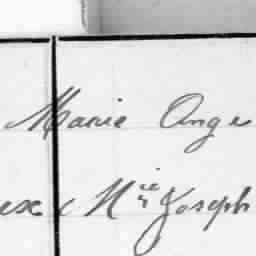 Marie Ange
ux Mie Joseph